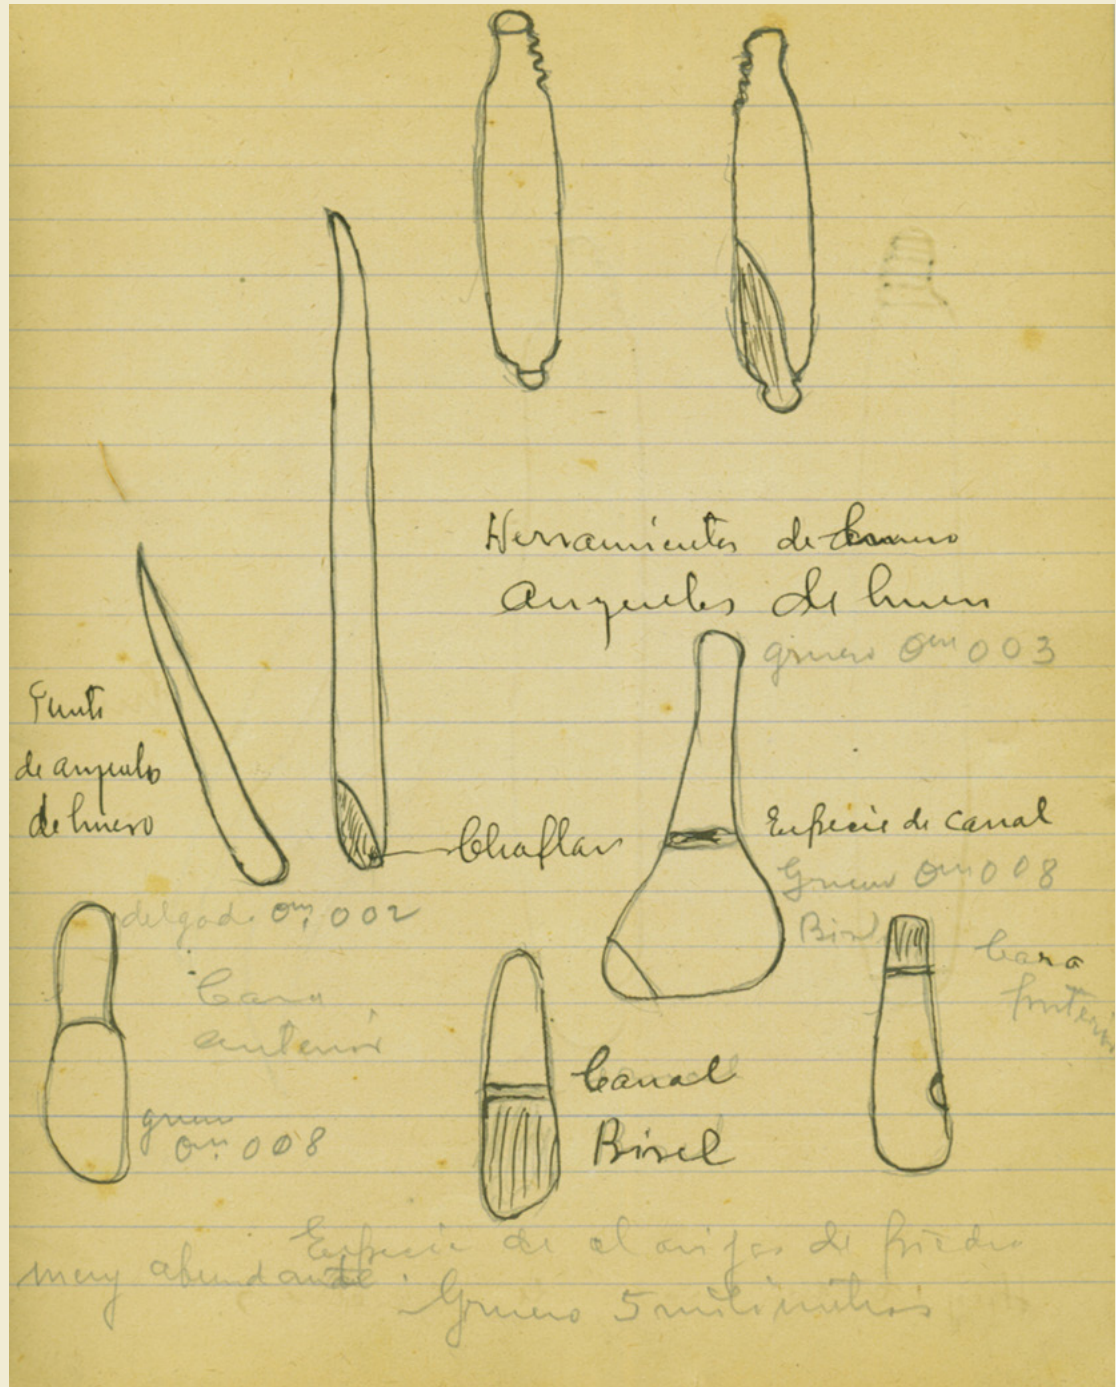 Herramientas de hueso
Anzuelos de hueso
grueso 0m 003
Punta
de anzuelo
de hueso
Chaflan
Especie de canal
Grueso 0m 008
Bisel
delgado 0m,002
Cara
anterior
Cara
Canal
grueso
0m. 008
Bisel
Especie de clavijas de piedra
muy abundante.
Grueso 5 milimetros